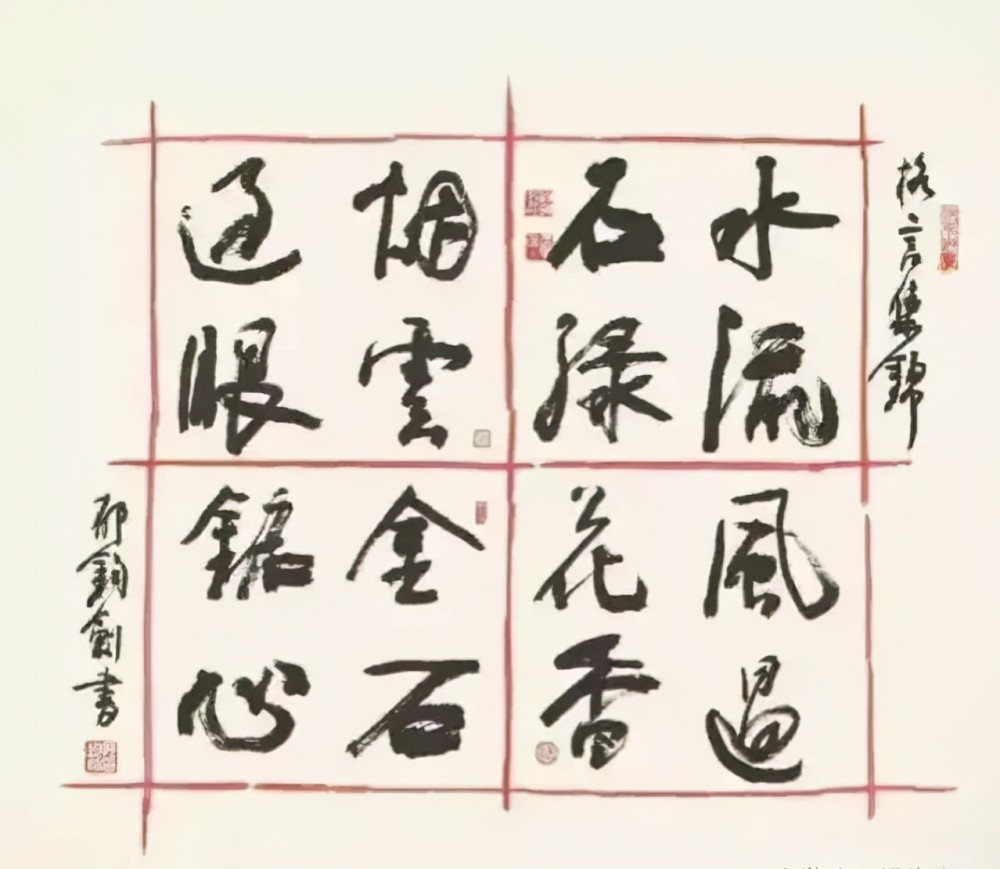 格言集錦
水流
石綠
風過
花香
烟雲
過眼
金石
銘心
郁鈞劍書